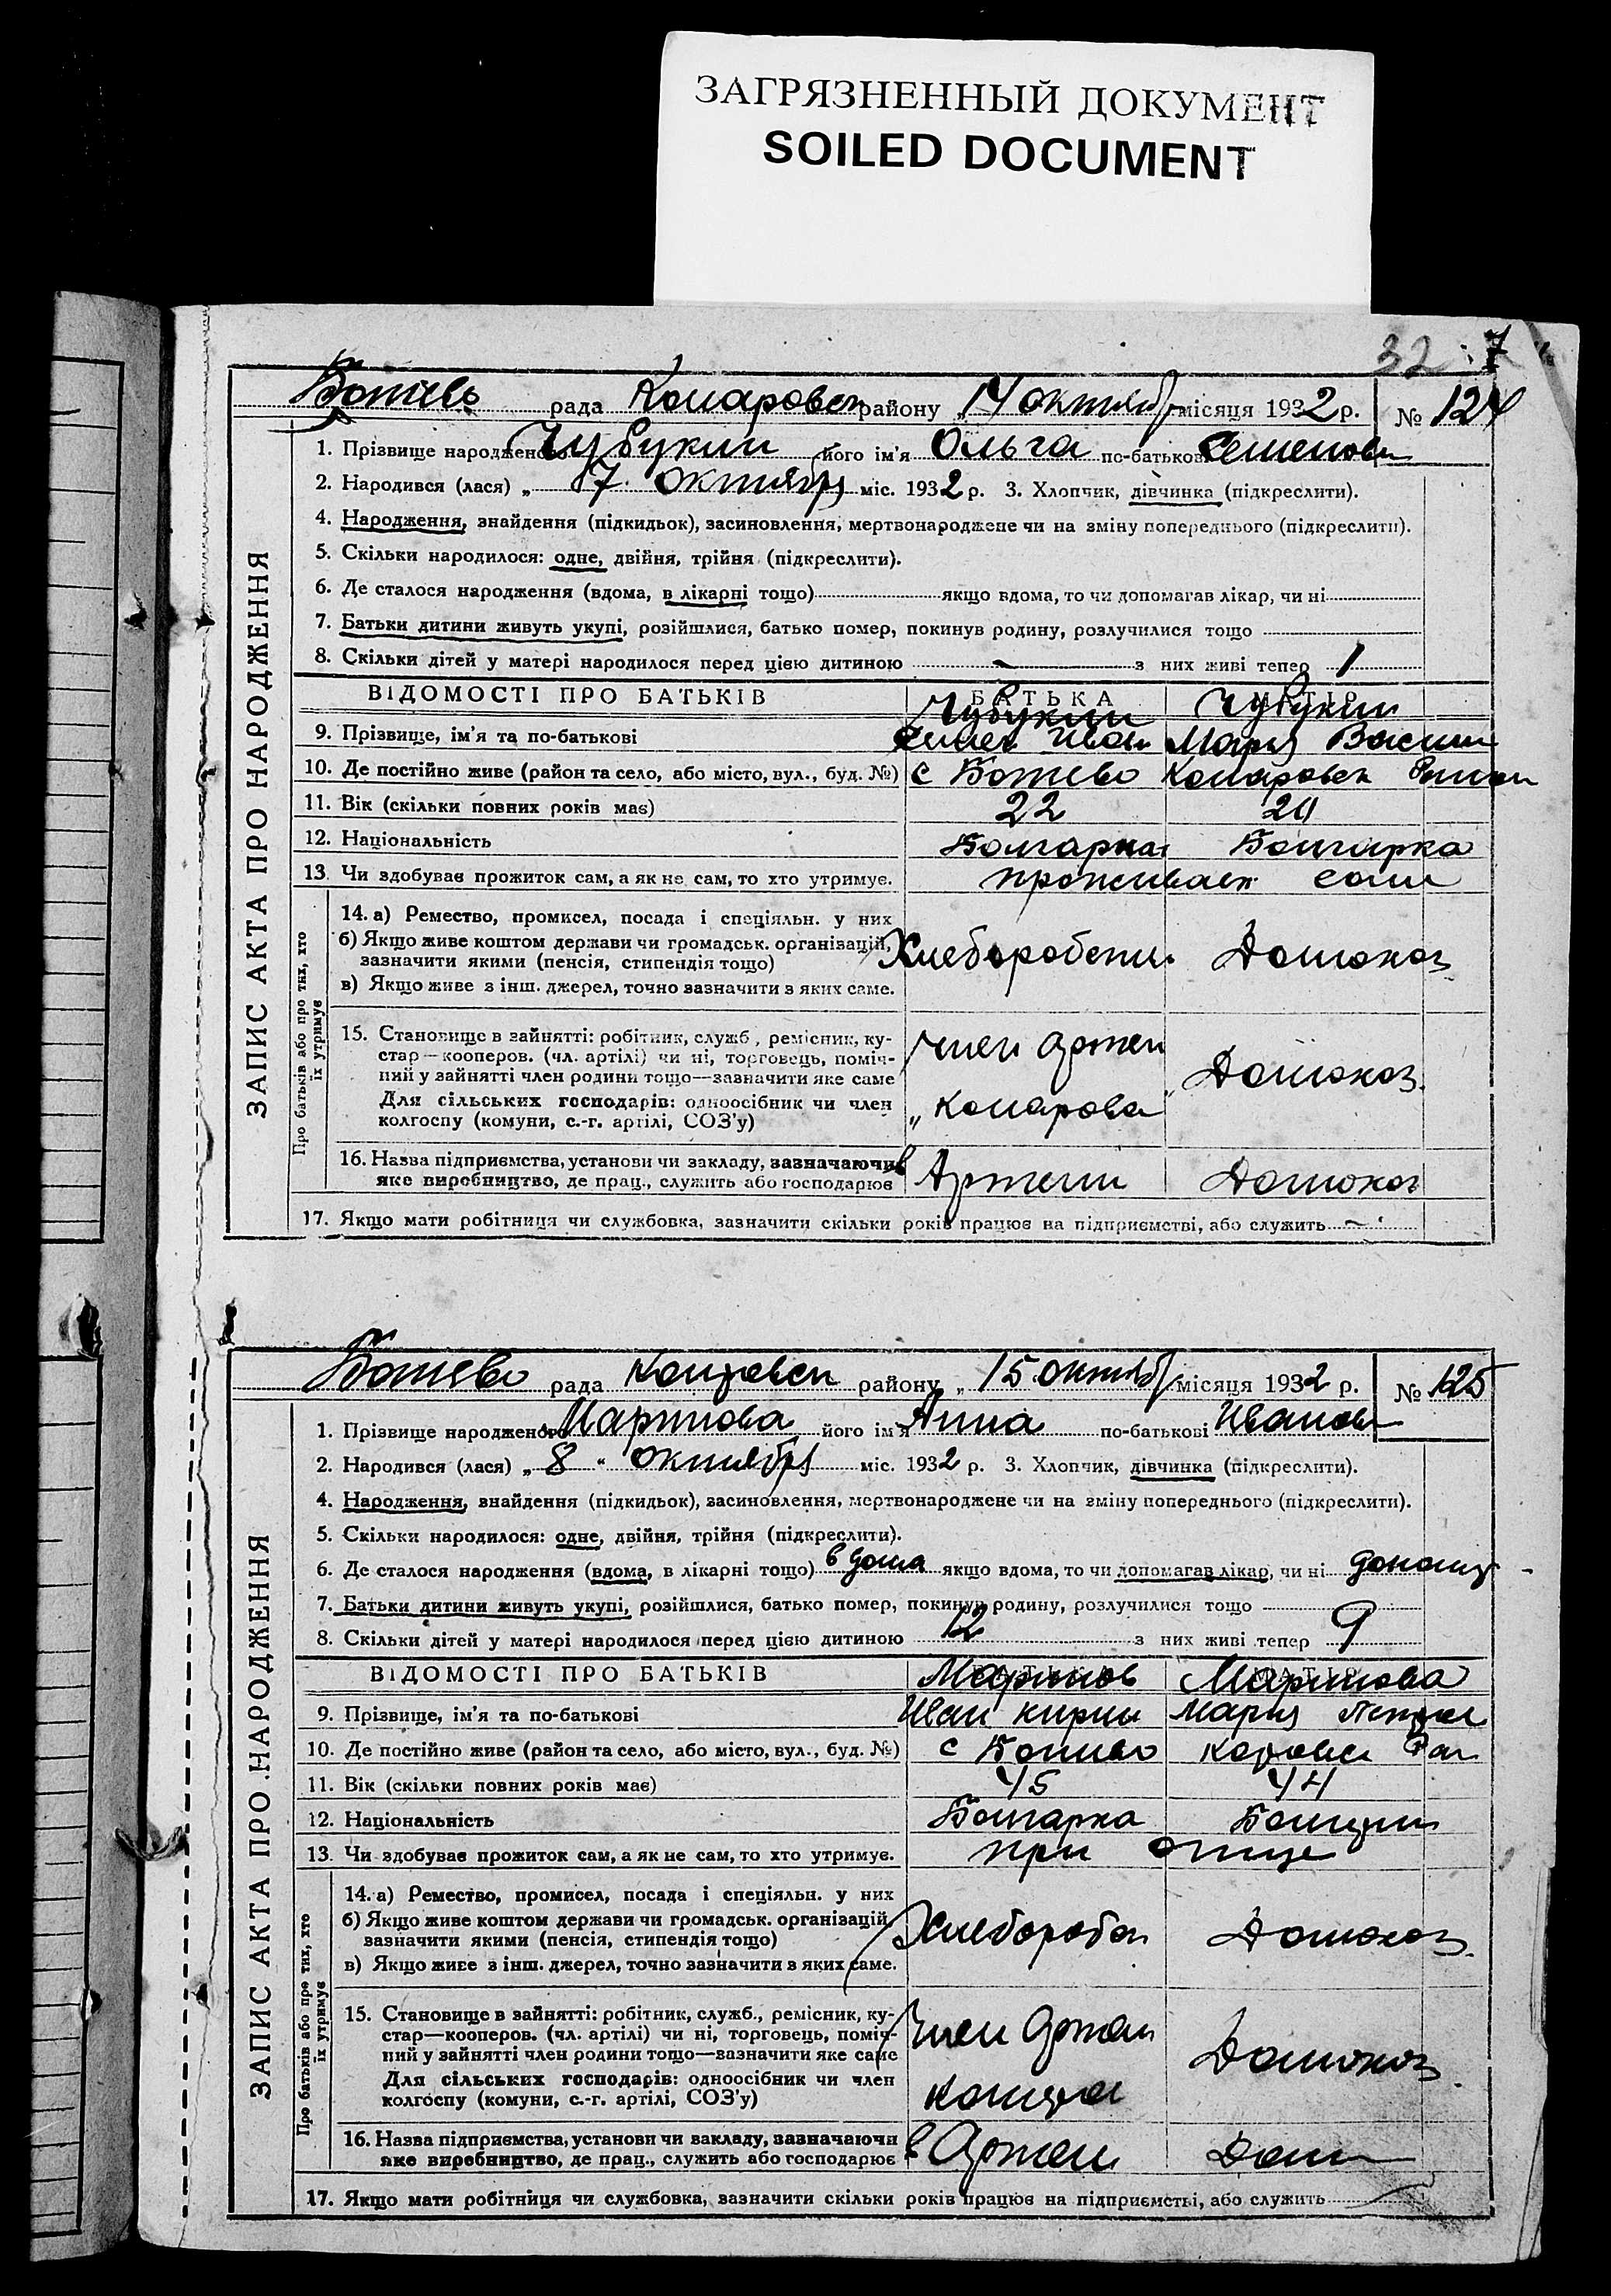 ЗАГРЯЗНЕННЫЙ ДОКУМЕНТ
SOILED DOCUMENT
32 7
Ботево рада Коларовск району „14 октября місяця 1932 р. № 124
ЗАПИС АКТА ПРО НАРОДЖЕННЯ
1. Прізвище народженого Чубукин його ім'я Ольга по-батькові Семенов
2. Народився (лася) „ 7 октября міс. 1932 р. 3. Хлопчик, дівчинка (підкреслити).
4. Народження, знайдення (підкидьок), засиновлення, мертвонароджене чи на зміну попереднього (підкреслити).
5. Скільки народилося: одне, двійня, трійня (підкреслити).
6. Де сталося народження (вдома, в лікарні тощо) якщо вдома, то чи допомагав лікар, чи ні
7. Батьки дитини живуть укупі, розійшлися, батько помер, покинув родину, розлучилися тощо
8. Скільки дітей у матері народилося перед цією дитиною - з них живі тепер 1
ВІДОМОСТІ ПРО БАТЬКІВ БАТЬКА МАТІР
Чубукин Чубукин
9. Прізвище, ім'я та по-батькові Семен Иван Мария Васил
10. Де постійно живе (район та село, або місто, вул., буд. №) с Ботево Коларовск
11. Вік (скільки повних років має) 22
12. Національність Болгарка Болгарка
13. Чи здобуває прожиток сам, а як не сам, то хто утримує. проживает
Про батьків або про тих, хто їх утримує
14. а) Ремество, промисел, посада і спеціяльн. у них
б) Якщо живе коштом держави чи громадськ. організацій, зазначити якими (пенсія, стипендія тощо) Домохоз
в) Якщо живе з інш. джерел, точно зазначити з яких саме.
15. Становище в зайнятті: робітник, служб., ремісник, ку-
стар—кооперов. (чл. артілі) чи ні, торговець, поміч- Член Артел
ний у зайнятті член родини тощо—зазначити яке саме Домохоз.
Для сільських господарів: одноосібник чи член „Коларова
колгоспу (комуни, с.-г. артілі, СОЗ'у)
16. Назва підприємства, установи чи закладу, зазначаючи в Артели Домохоз
яке виробництво, де прац., служить або господарює
17. Якщо мати робітниця чи службовка, зазначити скільки років працює на підприємстві, або служить -
Ботево рада району „ 15 октябр місяця 1932 р. № 125
ЗАПИС АКТА ПРО НАРОДЖЕННЯ
1. Прізвище народженого Маринова його ім'я Анна по-батькові Иванов
2. Народився (лася) „ 8 " октября міс. 1932 р. 3. Хлопчик, дівчинка (підкреслити).
4. Народження, знайдення (підкидьок), засиновлення, мертвонароджене чи на зміну попереднього (підкреслити).
5. Скільки народилося: одне, двійня, трійня (підкреслити).
6. Де сталося народження (вдома, в лікарні тощо) в дома якщо вдома, то чи допомагав лікар, чи ні
7. Батьки дитини живуть укупі, розійшлися, батько помер, покинув родину, розлучилися тощо
8. Скільки дітей у матері народилося перед цією дитиною 12 з них живі тепер 9
ВІДОМОСТІ ПРО БАТЬКІВ Маринов Маринова
9. Прізвище, ім'я та по-батькові Иван Кирил Мария
10. Де постійно живе (район та село, або місто, вул., буд. №) с Ботево
11. Вік (скільки повних років має) 45 44
12. Національність Болгарка
13. Чи здобуває прожиток сам, а як не сам, то хто утримує. при отце
Про батьків або про тих, хто їх утримує
14. а) Ремество, промисел, посада і спеціяльн. у них
б) Якщо живе коштом держави чи громадськ. організацій, зазначити якими (пенсія, стипендія тощо) Хлебороб Домохоз.
в) Якщо живе з інш. джерел, точно зазначити з яких саме.
15. Становище в зайнятті: робітник, служб., ремісник, ку-
стар—кооперов. (чл. артілі) чи ні, торговець, поміч- Член Артел
ний у зайнятті член родини тощо—зазначити яке саме Домохоз
Для сільських господарів: одноосібник чи член
колгоспу (комуни, с.-г. артілі, СОЗ'у)
16. Назва підприємства, установи чи закладу, зазначаючи в Артели Дом
яке виробництво, де прац., служить або господарює
17. Якщо мати робітниця чи службовка, зазначити скільки років працює на підприємстві, або служить